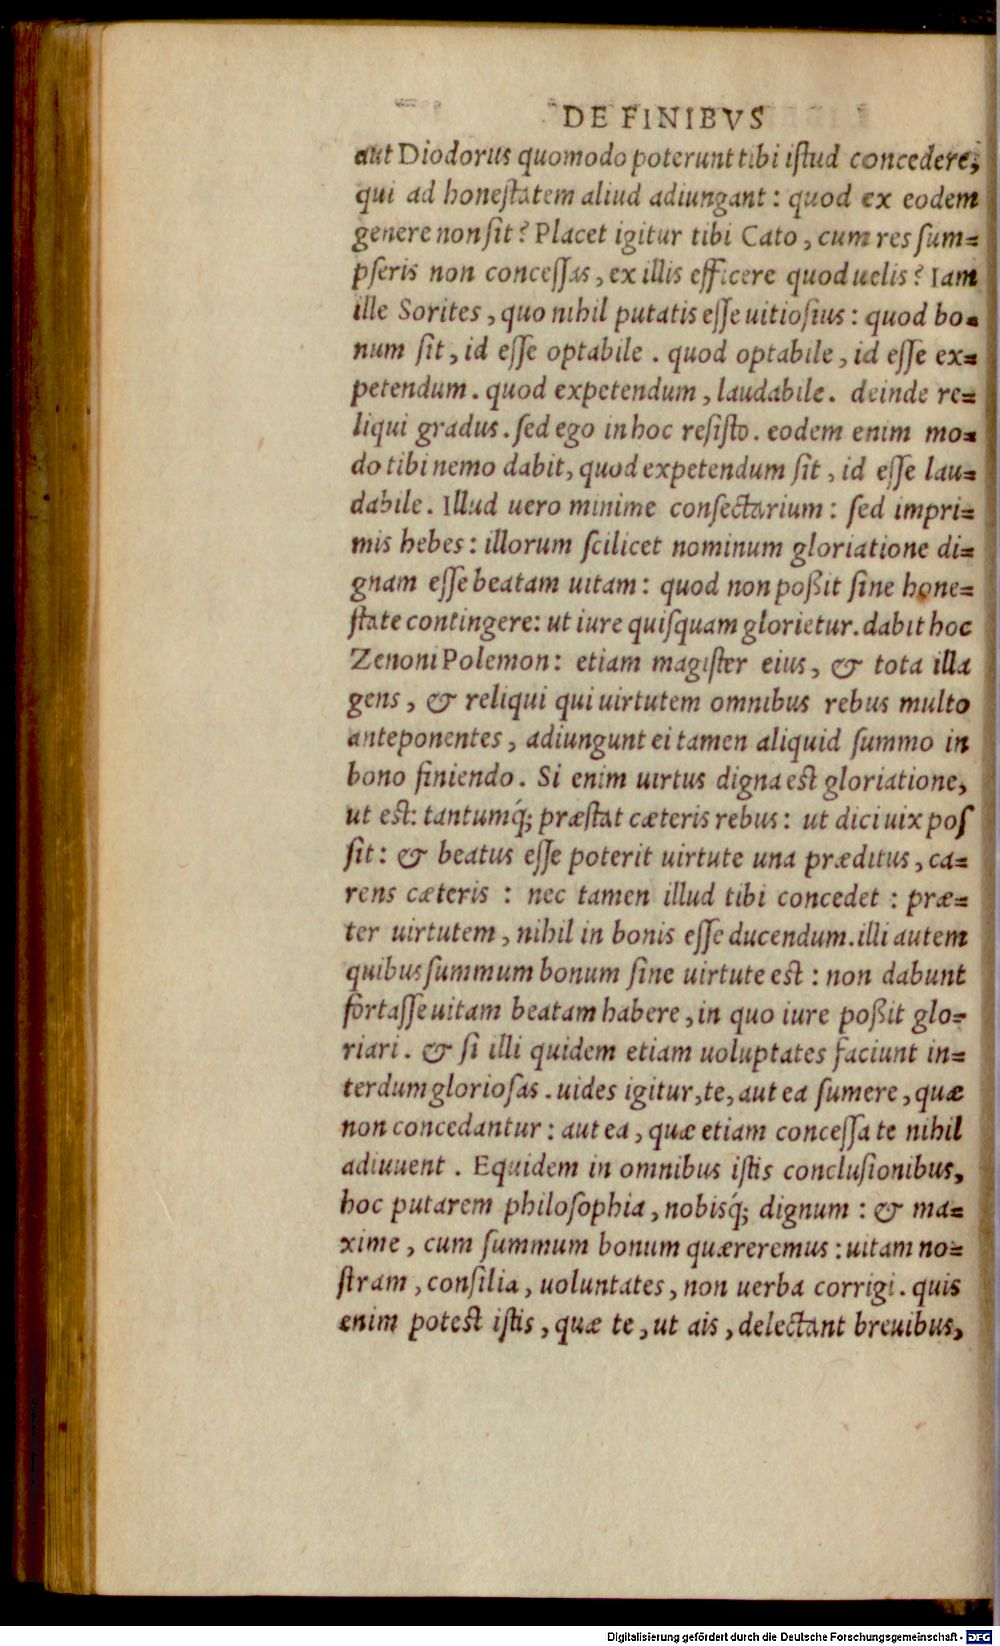 DE FINIBVS
aut Diodorus quomodo poterunt tibi iſtud concedere,
qui ad honeſtatem aliud adiungant : quod ex eodem
genere non ſit? Placet igitur tibi Cato, cum res ſum=
pſeris non conceſſas, ex illis efficere quod uelis? Iam
ille Sorites, quo nihil putatis eſſe uitioſius : quod bo=
num ſit, id eſſe optabile . quod optabile, id eſſe ex=
petendum. quod expetendum, laudabile. deinde re=
liqui gradus. ſed ego in hoc reſiſto. eodem enim mo=
do tibi nemo dabit, quod expetendum ſit, id eſſe lau=
dabile. Illud uero minime conſectarium : ſed impri=
mis hebes : illorum ſcilicet nominum gloriatione di=
gnam eſſe beatam uitam : quod non poßit ſine hone=
ſtate contingere: ut iure quiſquam glorietur. dabit hoc
Zenoni Polemon: etiam magiſter eius, & tota illa
gens, & reliqui qui uirtutem omnibus rebus multo
anteponentes, adiungunt ei tamen aliquid ſummo in
bono finiendo. Si enim uirtus digna eſt gloriatione,
ut eſt: tantumq́; præſtat cæteris rebus: ut dici uix poſ
ſit: & beatus eſſe poterit uirtute una præditus, ca=
rens cæteris : nec tamen illud tibi concedet : præ=
ter uirtutem, nihil in bonis eſſe ducendum. illi autem
quibus ſummum bonum ſine uirtute eſt : non dabunt
fortaſſe uitam beatam habere, in quo iure poßit glo=
riari. & ſi illi quidem etiam uoluptates faciunt in=
terdum glorioſas. uides igitur, te, aut ea ſumere, quæ
non concedantur : aut ea, quæ etiam conceſſa te nihil
adiuuent . Equidem in omnibus iſtis concluſionibus,
hoc putarem philoſophia, nobisq́; dignum : & ma=
xime, cum ſummum bonum quæreremus : uitam no=
ſtram, conſilia, uoluntates, non uerba corrigi. quis
enim poteſt iſtis, quæ te, ut ais, delectant breuibus,
Digitalisierung gefördert durch die Deutsche Forschungsgemeinschaft - DFG